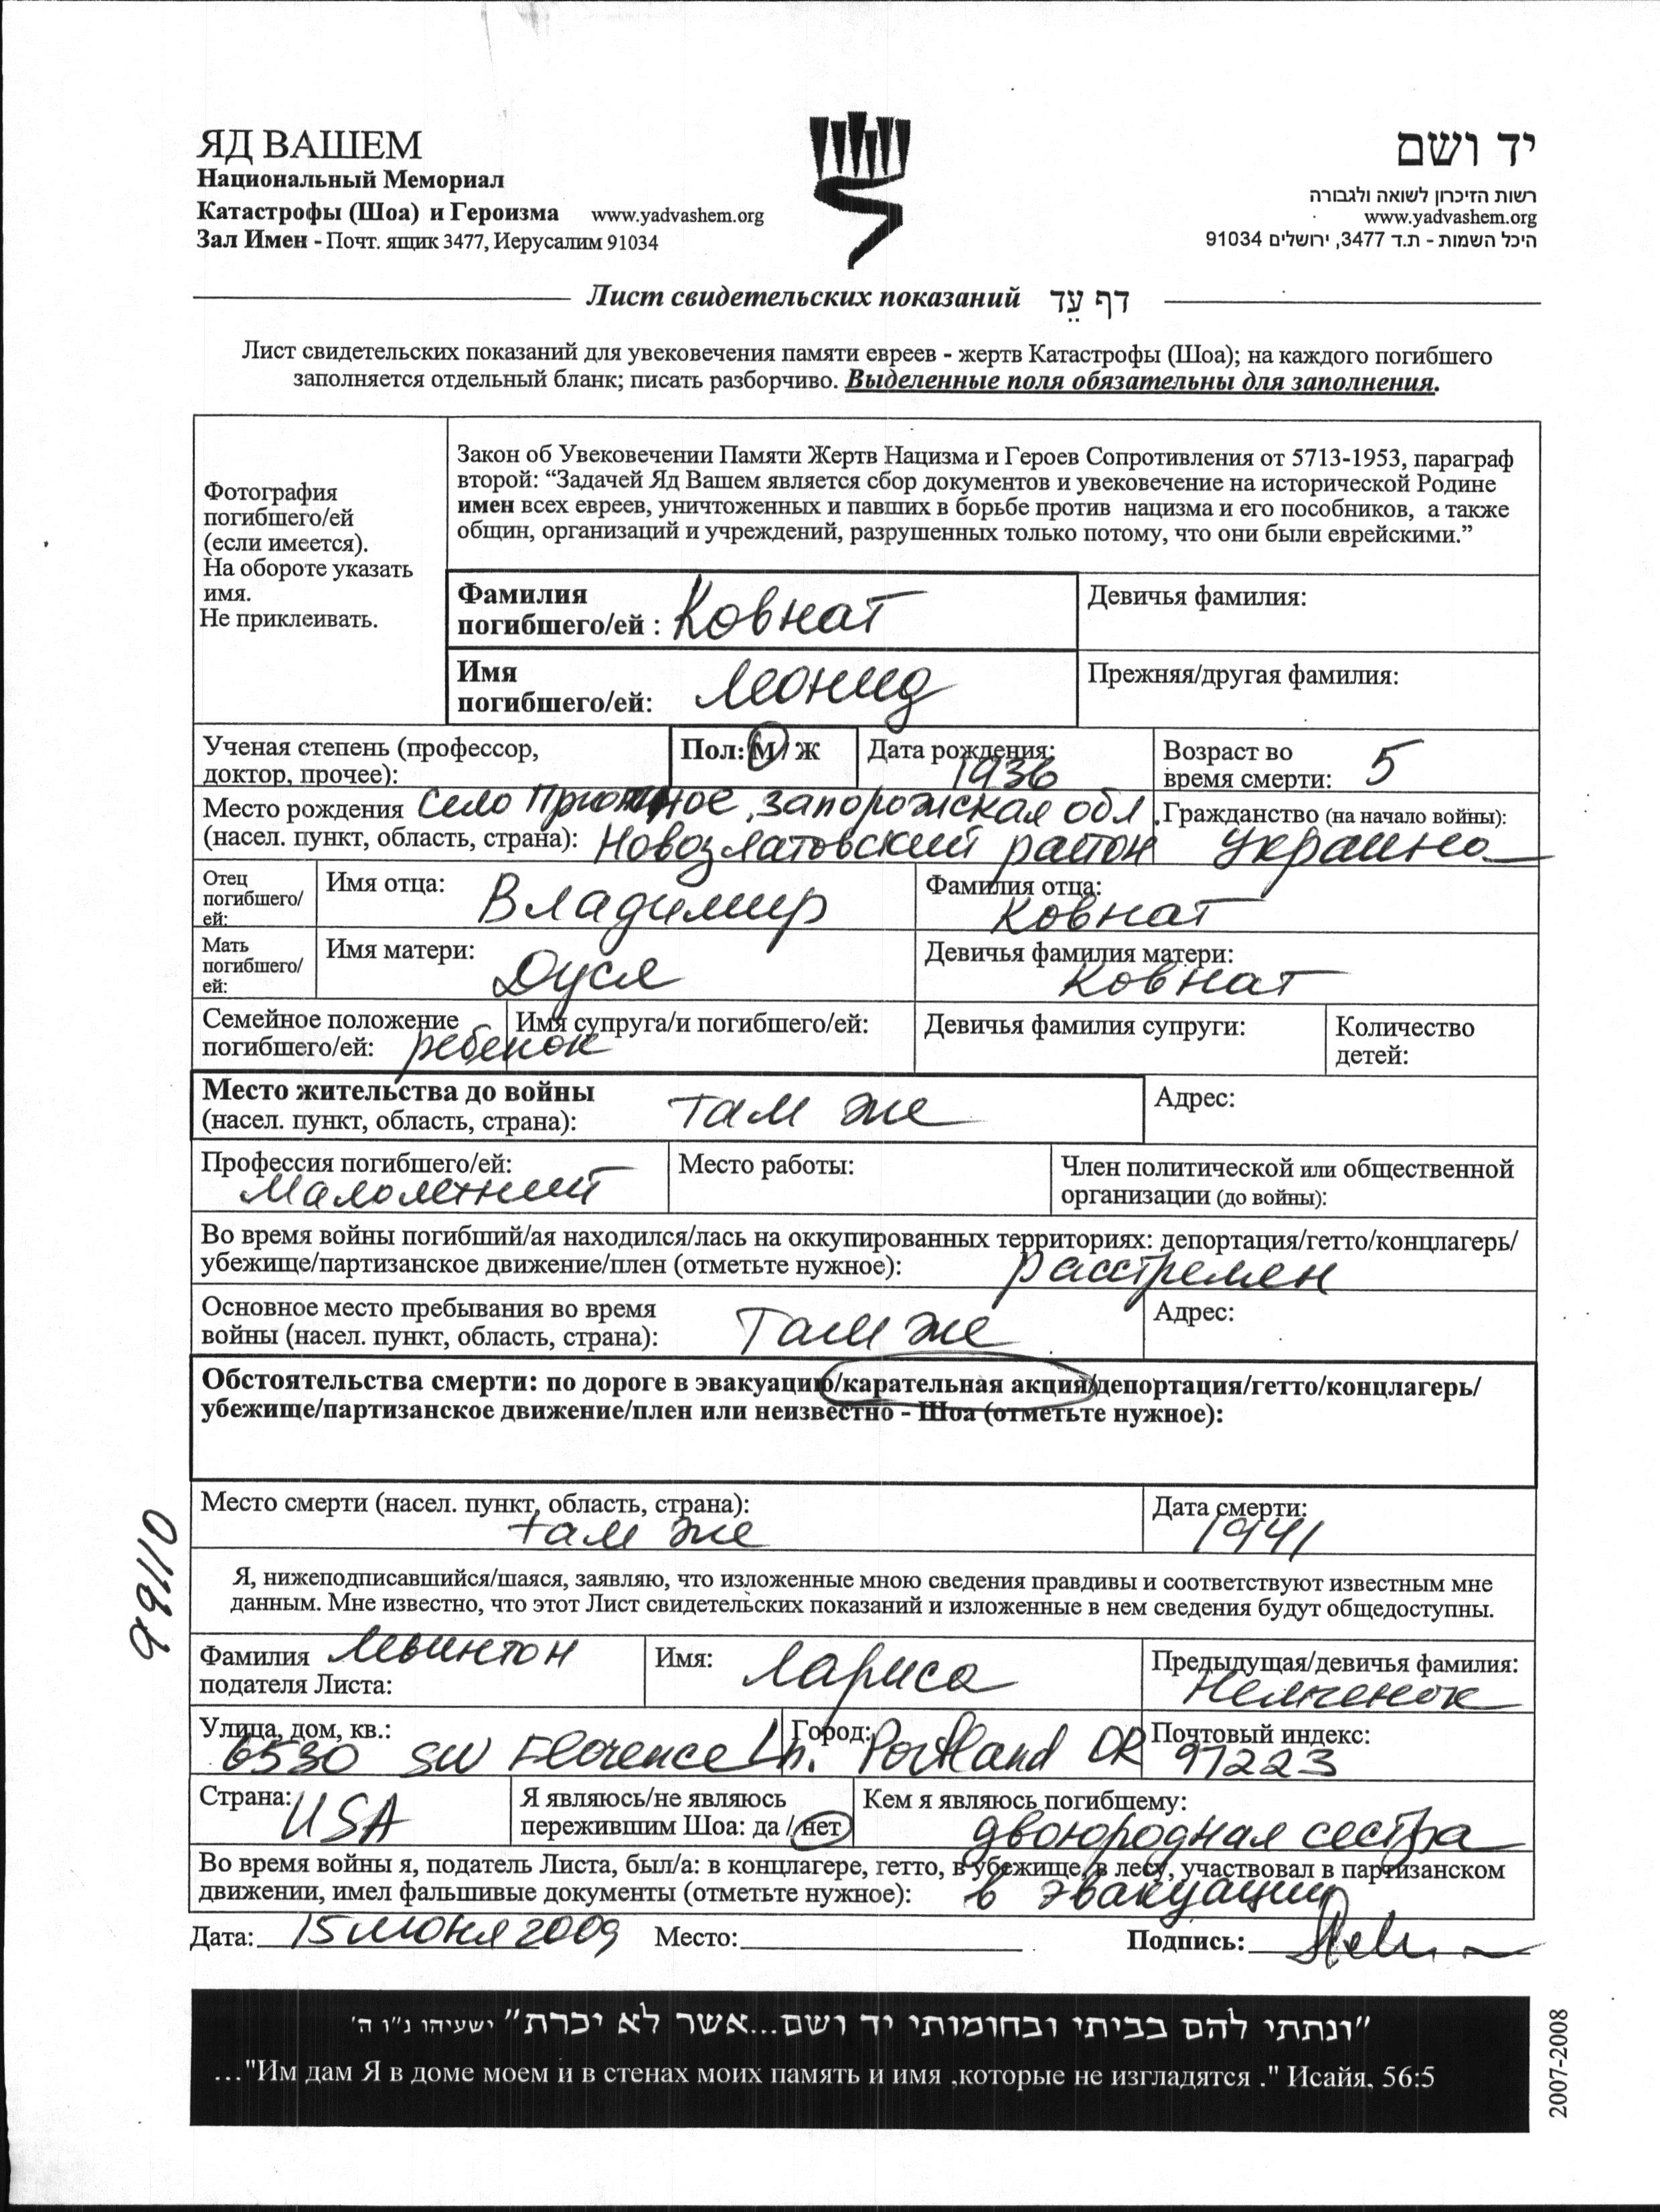 ЯД ВАШЕМ
Национальный Мемориал
Катастрофы (Шоа) и Героизма www.yadvashem.org
Зал Имен - Почт. ящик 3477, Иерусалим 91034
יד ושם
רשות הזיכרון לשואה ולגבורה
www.yadvashem.org
היכל השמות - ת.ד 3477, ירושלים 91034
Лист свидетельских показаний דף עֵד
Лист свидетельских показаний для увековечения памяти евреев - жертв Катастрофы (Шоа); на каждого погибшего
заполняется отдельный бланк; писать разборчиво. Выделенные поля обязательны для заполнения.
Фотография
погибшего/ей
(если имеется).
На обороте указать
имя.
Не приклеивать.
Закон об Увековечении Памяти Жертв Нацизма и Героев Сопротивления от 5713-1953, параграф
второй: “Задачей Яд Вашем является сбор документов и увековечение на исторической Родине
имен всех евреев, уничтоженных и павших в борьбе против нацизма и его пособников, а также
общин, организаций и учреждений, разрушенных только потому, что они были еврейскими.”
Фамилия
погибшего/ей : Ковнат
Девичья фамилия:
Имя
погибшего/ей: Леонид
Прежняя/другая фамилия:
Ученая степень (профессор,
доктор, прочее):
Пол: М / Ж
Дата рождения:
1936
Возраст во
время смерти: 5
Место рождения Село Приютное, Запорожская обл.
(насел. пункт, область, страна): Новозлатовский район
Гражданство (на начало войны):
Украина
Отец
погибшего/
ей:
Имя отца: Владимир
Фамилия отца:
Ковнат
Мать
погибшего/
ей:
Имя матери: Дуся
Девичья фамилия матери:
Ковнат
Семейное положение
погибшего/ей: ребенок
Имя супруга/и погибшего/ей:
Девичья фамилия супруги:
Количество
детей:
Место жительства до войны
(насел. пункт, область, страна): там же
Адрес:
Профессия погибшего/ей:
Малолетний
Место работы:
Член политической или общественной
организации (до войны):
Во время войны погибший/ая находился/лась на оккупированных территориях: депортация/гетто/концлагерь/
убежище/партизанское движение/плен (отметьте нужное): расстрелен
Основное место пребывания во время
войны (насел. пункт, область, страна): Там же
Адрес:
Обстоятельства смерти: по дороге в эвакуацию/карательная акция/депортация/гетто/концлагерь/
убежище/партизанское движение/плен или неизвестно - Шоа (отметьте нужное):
Место смерти (насел. пункт, область, страна):
там же
Дата смерти:
1941
99110
Я, нижеподписавшийся/шаяся, заявляю, что изложенные мною сведения правдивы и соответствуют известным мне
данным. Мне известно, что этот Лист свидетельских показаний и изложенные в нем сведения будут общедоступны.
Фамилия Левинтон
подателя Листа:
Имя: Лариса
Предыдущая/девичья фамилия:
Немченок
Улица, дом, кв.:
6530 SW Florence Ln.
Город: Portland OR
Почтовый индекс:
97223
Страна: USA
Я являюсь/не являюсь
пережившим Шоа: да / нет
Кем я являюсь погибшему:
двоюродная сестра
Во время войны я, податель Листа, был/а: в концлагере, гетто, в убежище, в лесу, участвовал в партизанском
движении, имел фальшивые документы (отметьте нужное): в эвакуации
Дата: 15 июня 2009 Место: Подпись:
"ונתתי להם בביתי ובחומותי יד ושם...אשר לא יכרת" ישעיהו נ"ו ה'
..."Им дам Я в доме моем и в стенах моих память и имя ,которые не изгладятся ." Исайя, 56:5
2007-2008